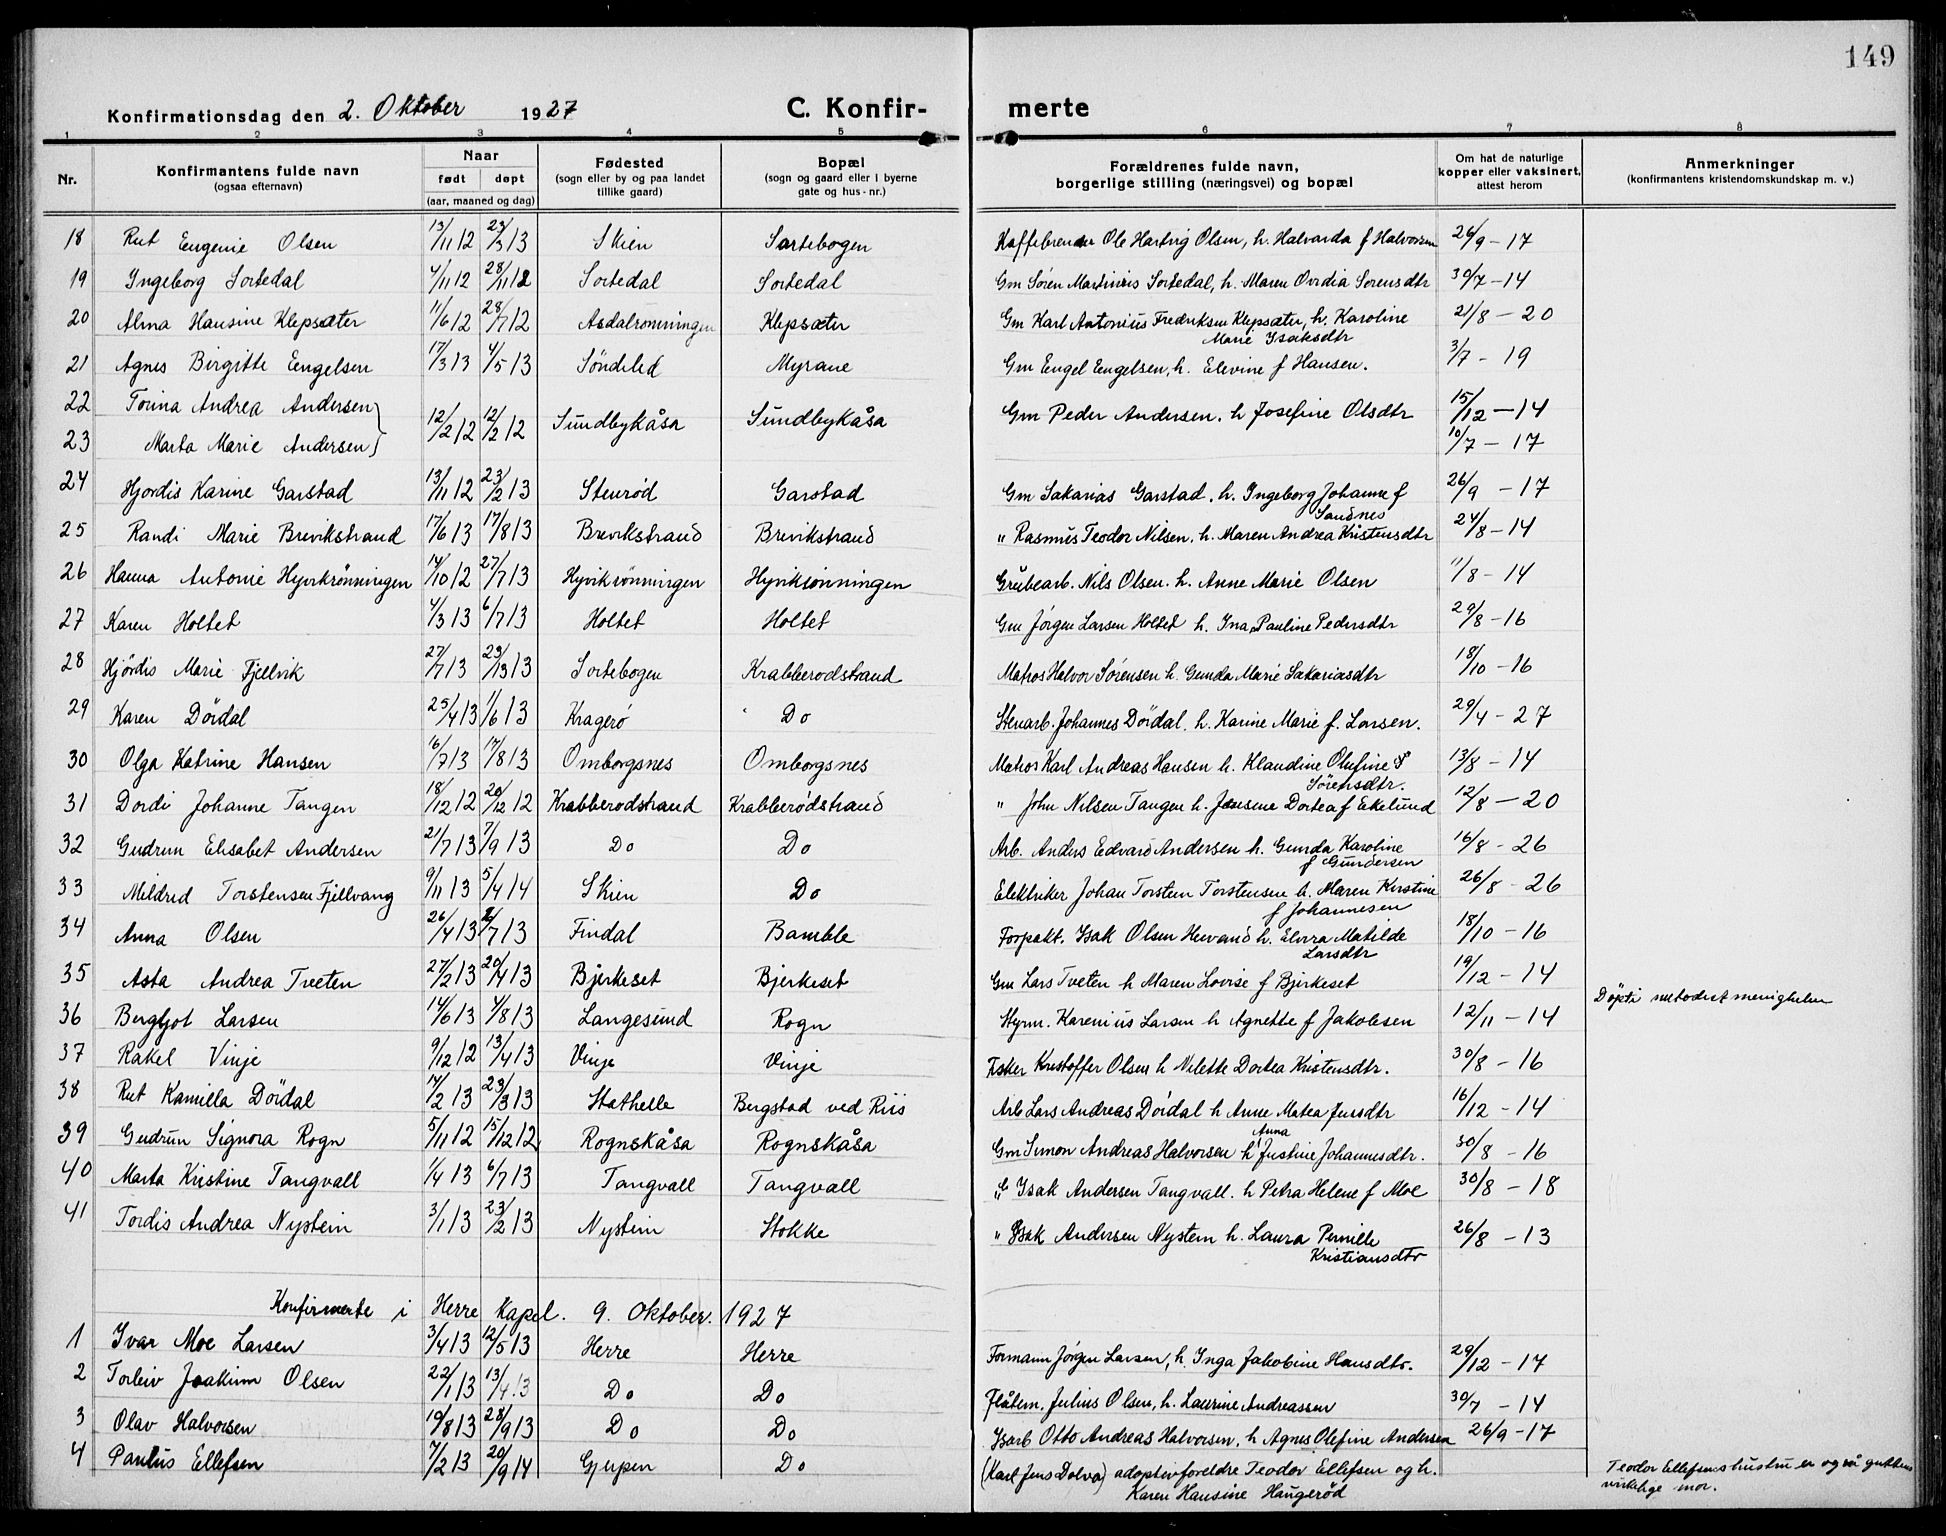 149
Konfirmationsdag den 2. Oktober 1927 C. Konfir- merte
1 2 3 4 5 6 7 8
Nr. Konfirmantens fulde navn (ogsaa efternavn) Naar født døpt (aar, maaned og dag) Fødested (sogn eller by og paa landet tillike gaard) Bopæl (sogn og gaard eller i byerne gate og hus-nr.) Forældrenes fulde navn, borgerlige stilling (næringsvei) og bopæl Om hat de naturlige kopper eller vaksinert, attest herom Anmerkninger (konfirmantens kristendomskundskap m. v.)
18 Rut Eugenie Olsen 13/11 12 23/3 13 Skien Sortebogen Kaffebrender Ole Hartvig Olsen, h. Halvarda f Halvorsen 26/9 - 17
19 Ingeborg Sortedal 4/11 12 28/11 12 Sortedal Sortedal Gm Søren Martinius Sortedal, h. Maren Ovidia Sorensdtr 30/7 - 14
20 Alma Hansine Klepsæter 11/6 12 28/7 12 Asdalrønningen Klepsæter Gm Karl Antonius Fredriksen Klepsæter, h. Karoline 21/8 - 20
Marie Isaksdtr
21 Agnes Birgitte Eengelsen 17/3 13 4/5 13 Søndeled Myrane Gm Engel Eengelsen, h. Elevine f Hansen. 3/7 - 19
22 Torina Andrea Andersen 12/2 12 12/2 12 Sundbykåsa Sundbykåsa Gm Peder Andersen, h Josefine Olsdtr 15/12 - 14
23 Marta Marie Andersen 10/7 - 17
24 Hjordis Karine Garstad 13/11 12 23/2 13 Stenrød Garstad Gm Sakarias Garstad, h. Ingeborg Johanne f 26/9 - 17
Sandnes
25 Randi Marie Brevikstrand 17/6 13 17/8 13 Brevikstrand Brevikstrand " Rasmus Teodor Nilsen, h. Maren Andrea Kristensdtr 24/8 - 14
26 Hanna Antonie Hyvikrønningen 14/10 12 27/7 13 Hyvikrønningen Hyvikrønningen Grubearb. Nils Olsen. h. Anne Marie Olsen 11/8 - 14
27 Karen Holtet 4/3 13 6/7 13 Holtet Holtet Gm Jørgen Larsen Holtet h. Ina Pauline Pedersdtr 29/8 - 16
28 Hjørdis Marie Fjellvik 27/7 13 Sortebogen Krabberodstrand Matros Halvor Sørensen h. Gunda Marie Sakariasdtr 18/10 - 16
29 Karen Dördal 25/4 13 1/6 13 Kragerø Do Stenarb. Johannes Dördal. h. Karine Marie f. Larsen. 29/4 - 27
30 Olga Katrine Hansen 16/7 13 17/8 13 Omborgsnes Omborgsnes Matros Karl Andreas Hansen h. Klaudine Olufine f 13/8 - 14
Sørensdtr.
31 Dordi Johanne Tangen 18/12 12 20/12 12 Krabberødstrand Krabberødstrand " John Nilsen Tangen h. Jensine Dortea f Ekelund 12/8 - 20
32 Gudrun Elisabet Andersen 21/7 13 7/9 13 Do Do Arb. Anders Edvard Andersen h. Gunda Karoline 16/8 - 26
f Gundersen
33 Mildred Torstensen Fjellvang 9/11 13 5/4 14 Skien Do Elektriker Johan Torstein Torstensen h. Maren Kirstine 26/8 - 26
f Johannesen
34 Anna Olsen 26/4 13 Findal Bamble Forpakt. Isak Olsen h. Elvira Matilde 18/10 - 16
Larsdtr
35 Asta Andrea Tveten 27/2 13 20/4 13 Bjerkeset Bjerkeset Gm Lars Tveten h Maren Lovise f Bjerkeset 19/12 - 14
36 Bergljot Larsen 14/6 13 4/8 13 Langesund Rogn Styrm. Karenius Larsen h Agnette f Jakobsen 12/11 - 14 Døpt i metodist menigheten
37 Rakel Vinje 9/12 12 13/4 13 Vinje Vinje Fisker Kristoffer Olsen h Nilette Dortea Kristensdtr. 30/8 - 16
38 Rut Kamilla Dördal 14/2 13 23/3 13 Stathelle Bergstad ved Riis Arb Lars Andreas Dördal h Anne Matea Jensdtr 16/12 - 14
39 Gudrun Signora Rogn 5/11 12 15/12 12 Rognskåsa Rognskåsa Gm Simon Andreas Halvorsen h Anna Justine Johannesdtr. 30/8 - 16
40 Marta Kristine Tangvall 1/4 13 6/7 13 Tangvall Tangvall " Isak Andersen Tangvall. h Petra Helene f Moe 30/8 - 18
41 Tordis Andrea Nystein 3/1 13 23/2 13 Nystein Stokke " Isak Andersen Nystein h. Laura Pernille 26/8 - 13
Kristiansdtr
Konfirmerte i Herre Kapel. 9. Oktober. 1927
1 Ivar Moe Larsen 3/4 13 12/5 13 Herre Herre Formann Jørgen Larsen, h. Inga Jakobine Hansdtr. 29/12 - 17
2 Torleiv Joakim Olsen 22/1 13 13/4 13 Do Do Flåtem. Julius Olsen, h. Laurine Andreassen 30/7 - 14
3 Olav Halvorsen 19/8 13 28/9 13 Do Do Isarb Otto Andreas Halvorsen, h Agnes Olefine Andersen 26/9 - 17
4 Paulus Ellefsen 7/2 13 20/9 14 Gjerpen Do (Karl Jens Dolva) adoptivforeldre Teodor Ellefsen og h. Teodor Ellefsens hustru er også guttens
Karen Hansine Haugerød virkelige mor.